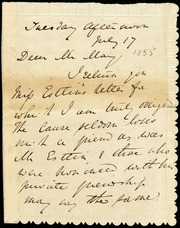 Tuesday Afternoon
July 17
Dear Mr May, 1855
I return you
Miss Estlin's letter for
which I am truly obliged
The cause seldom loses
such a friend as was
Mr Estlin & those who
were honoured with his
private friendship
may say the same